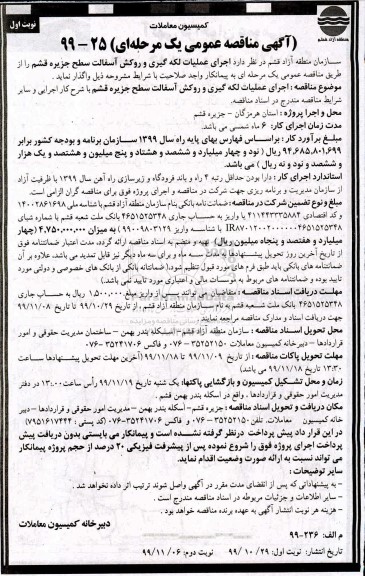 کمیسیون معاملات
نوبت اول
سازمان منطقه آزاد قشم
(آگهی مناقصه عمومی یک مرحله‌ای) ۲۵ - ۹۹
سازمان منطقه آزاد قشم در نظر دارد اجرای عملیات لکه گیری و روکش آسفالت سطح جزیره قشم را از
طریق مناقصه عمومی یک مرحله ای به پیمانکار واجد صلاحیت با شرایط مشروحه ذیل واگذار نماید .
موضوع مناقصه : اجرای عملیات لکه گیری و روکش آسفالت سطح جزیره قشم با شرح کار اجرایی و سایر
شرایط مناقصه مندرج در اسناد مناقصه.
محل و اجرا پروژه : استان هرمزگان - جزیره قشم
مدت زمان اجرای کار: ۶ ماه شمسی می باشد.
مبلغ برآورد کار : براساس فهارس بهای پایه راه سال ۱۳۹۹ سازمان برنامه و بودجه کشور برابر
۹۴,۶۸۵,۸۰۱,۶۹۹ ریال ( نود و چهار میلیارد و ششصد و هشتاد و پنج میلیون و هشتصد و یک هزار
و ششصد و نود و نه ریال ) می باشد.
استاندارد اجرای کار : دارا بودن حداقل رتبه ۴ راه و باند فرودگاه و زیرسازی راه آهن سال ۱۳۹۹ با ظرفیت آزاد
از سازمان مدیریت و برنامه ریزی جهت شرکت در مناقصه و اجرای پروژه فوق برای مناقصه گران الزامی است.
مبلغ و نوع تضمین شرکت در مناقصه : ضمانت نامه بانکی بنام سازمان منطقه آزاد قشم با شناسه ملی ۱۴۰۰۲۸۶۱۶۹۸
و کد اقتصادی ۴۱۱۴۴۳۳۳۵۸۸۴ یا واریز به حساب جاری ۴۶۵۱۵۲۵۳۴۸ بانک ملت شعبه قشم با شماره شبای
با شناسه واریز ۹۹۰۰۹۸۰۳۱۲۹ به میزان ۴,۷۵۰,۰۰۰,۰۰۰ (چهار
میلیارد و هفتصد و پنجاه میلیون ریال) تهیه و منضم به اسناد مناقصه ارائه گردد. مدت اعتبار ضمانتنامه فوق
از تاریخ آخرین روز تحویل پیشنهادها به مدت سه ماه و برای سه ماه دیگر نیز قابل تمدید می باشد، علاوه بر آن
ضمانتنامه های بانکی باید طبق فرم های مورد قبول تنظیم شود(ضماناته بانکی از بانک های خصوصی و دولتی مورد
تایید بوده و ضمانتنامه های مربوطه به موسسات مالی و اعتباری مورد تایید نمی باشد).
مهلت دریافت اسناد مناقصه : متقاضیان می توانند پس از واریز مبلغ ۱,۵۰۰,۰۰۰ ریال به حساب جاری
۴۶۵۱۵۲۵۳۴۸ بانک ملت شعبه قشم به نام سازمان منطقه آزاد قشم ، از تاریخ ۹۹/۱۰/۲۹ تا تاریخ ۹۹/۱۱/۰۸
جهت دریافت اسناد و مدارک مناقصه مراجعه نمایند .
محل تحویل اسناد مناقصه : سازمان منطقه آزاد قشم- اسکله بندر بهمن - ساختمان مدیریت حقوقی و امور
قراردادها - دبیرخانه کمیسیون معاملات ۳۵۲۵۲۱۵۰ - ۰۷۶ و فاکس ۳۵۲۴۱۷۰۶ - ۰۷۶
مهلت تحویل پاکات مناقصه : از تاریخ ۹۹/۱۱/۰۹ تا ۹۹/۱۱/۱۸ (آخرین مهلت تحویل پیشنهادها ساعت
۱۳:۳۰ تاریخ ۹۹/۱۱/۱۸ می باشد)
زمان و محل تشکیل کمیسیون و بازگشایی پاکتها: یک شنبه تاریخ ۹۹/۱۱/۱۹ رأس ساعت ۱۳:۰۰ در دفتر
مدیریت امور حقوقی و قراردادها ، واقع در اسکله بندر بهمن قشم .
مکان دریافت و تحویل اسناد مناقصه : جزیره قشم- اسکله بندر بهمن - مدیریت امور حقوقی و قراردادها - دبیر
خانه کمیسیون معاملات. تلفن ۳۵۲۵۲۱۵۰ - ۰۷۶ و فاکس ۳۵۲۴۱۷۰۶-۰۷۶ (کد پستی : ۷۹۵۱۶۱۷۴۴۴)
در این قرار داد پیش پرداخت درنظر گرفته نشده است و پیمانکار می بایستی بدون دریافت پیش
پرداخت اجرای پروژه فوق را شروع نموده پس از پیشرفت فیزیکی ۲۰ درصد از حجم پروژه پیمانکار
می تواند نسبت به ارائه صورت وضعیت اقدام نماید.
سایر توضیحات :
- به پیشنهاداتی که پس از انقضای مدت مقرر در آگهی واصل شوند ترتیب اثر داده نخواهد شد .
- سایر اطلاعات و جزئیات مربوطه در اسناد مناقصه مندرج است .
- هزینه هر نوبت انتشار آگهی به عهده برنده مناقصه خواهد بود .
دبیرخانه کمیسیون معاملات
م الف: ۲۳۶-۹۹
تاریخ انتشار: نوبت اول: ۲۹ / ۱۰ / ۹۹ نوبت دوم: ۰۶ / ۱۱ / ۹۹